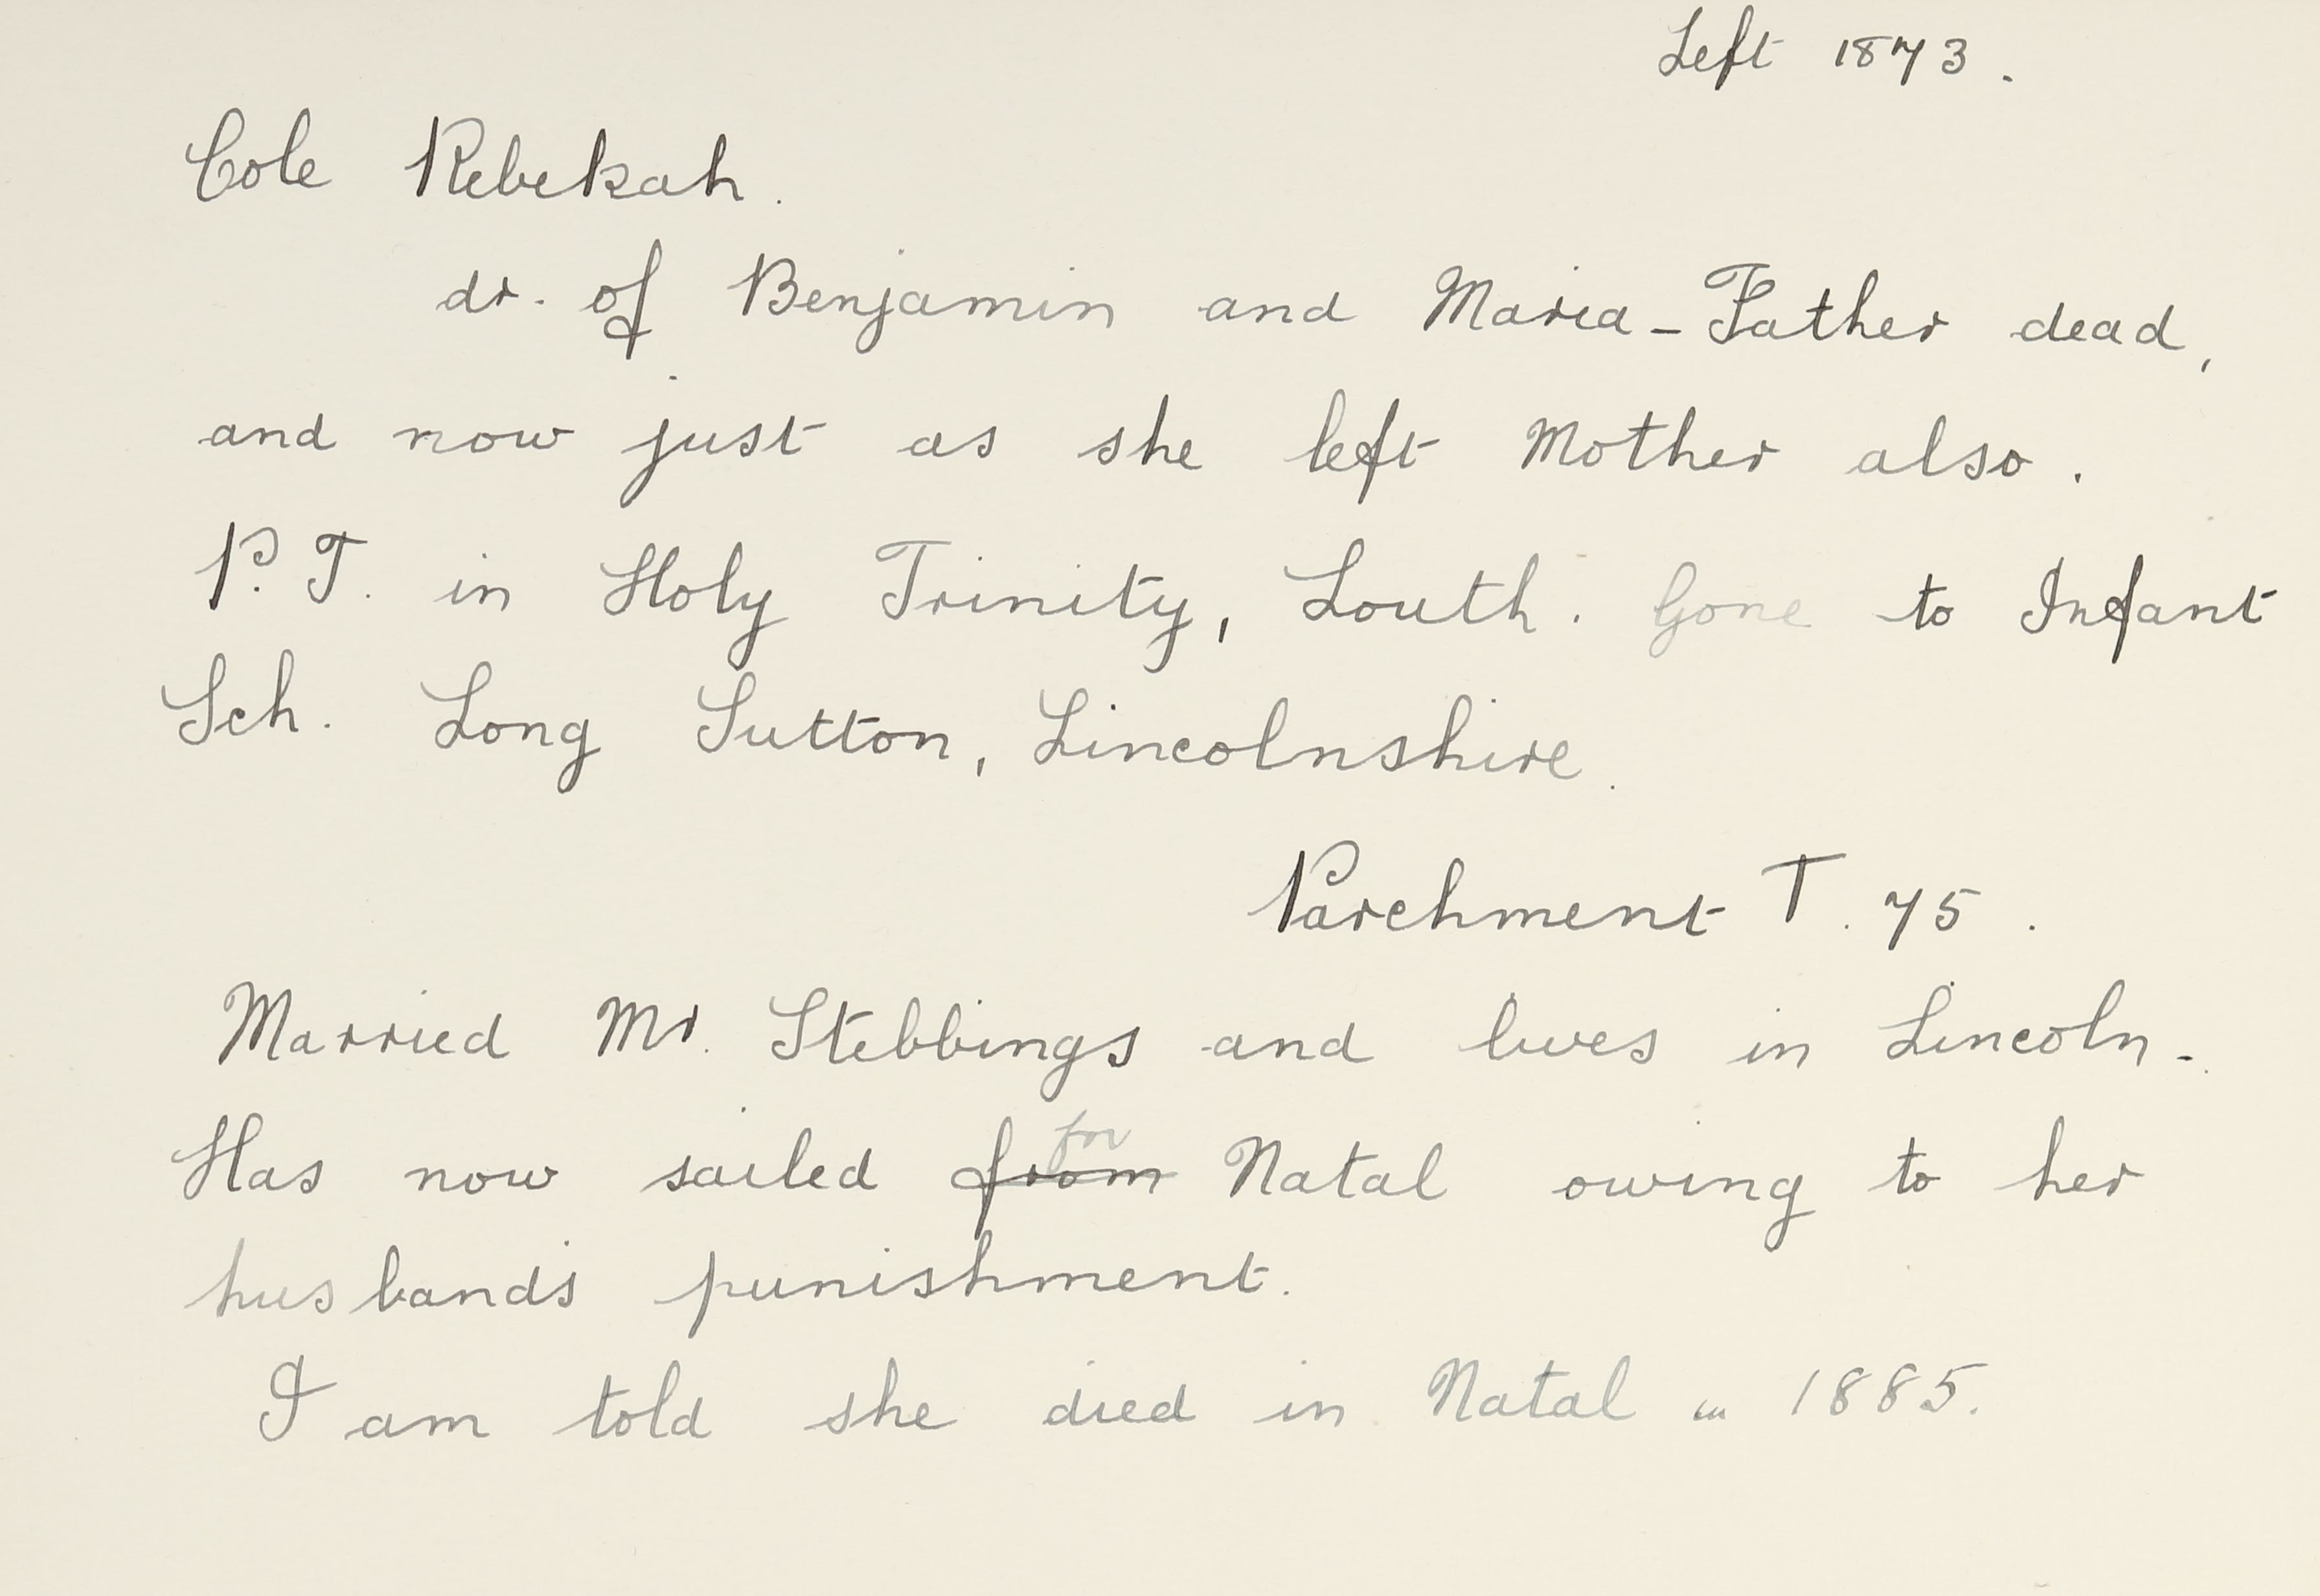 Left 1873.
Cole Rebekah.
dr. of Benjamin and Maria - Father dead,
and now just as she left Mother also.
P.T. in Holy Trinity, Louth. Gone to Infant
Sch. Long Sutton, Lincolnshire.
Parchment T. 75.
Married Mr. Stebbings and lives in Lincoln -
for
Has now sailed from Natal owing to her
husband's punishment.
I am told she died in Natal in 1885.